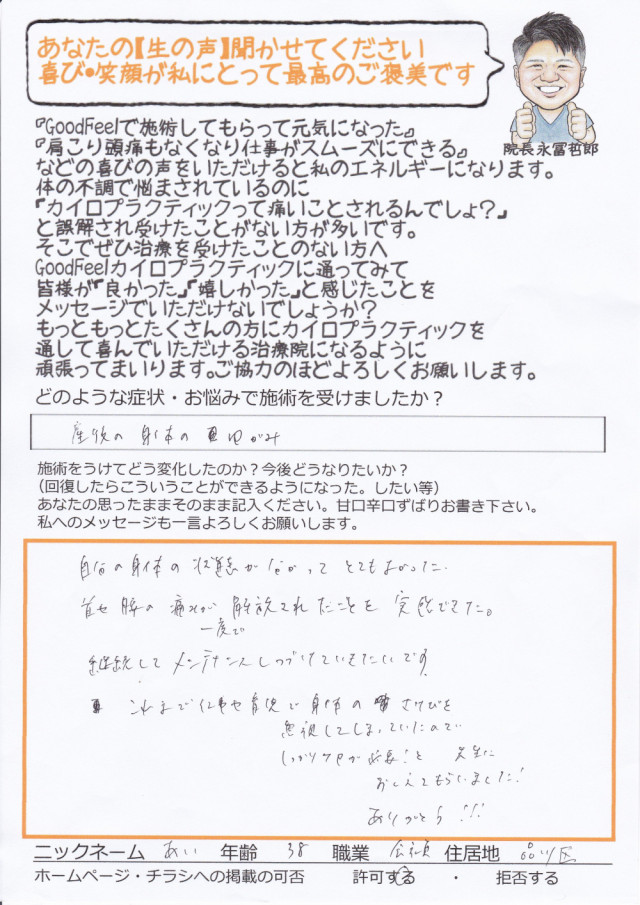 あなたの【生の声】聞かせてください
喜び•笑顔が私にとって最高のご褒美です
院長永冨哲郎
『GoodFeelで施術してもらって元気になった』
『肩こり頭痛もなくなり仕事がスムーズにできる』
などの喜びの声をいただけると私のエネルギーになります。
体の不調で悩まされているのに
「カイロプラクティックって痛いことされるんでしょ？」
と誤解され受けたことがない方が多いです。
そこでぜひ治療を受けたことのない方へ
GoodFeelカイロプラクティックに通ってみて
皆様が「良かった」「嬉しかった」と感じたことを
メッセージでいただけないでしょうか？
もっともっとたくさんの方にカイロプラクティックを
通して喜んでいただける治療院になるように
頑張ってまいります。ご協力のほどよろしくお願いします。
どのような症状・お悩みで施術を受けましたか？
産後の身体のゆがみ
施術をうけてどう変化したのか？今後どうなりたいか？
（回復したらこういうことができるようになった。したい等）
あなたの思ったままそのまま記入ください。甘口辛口ずばりお書き下さい。
私へのメッセージも一言よろしくお願いします。
自分の身体の状態が分かって とてもよかった.
首や腰の痛みが 解放されたことを 実感できた。
一度で
継続して メンテナンスしつづけていきたいです
これまで仕事や育児で身体のさけびを
無視してしまっていたので
しっかりケアが必要！と 先生に
おしえてもらいました！
ありがとう!!!
ニックネーム あい 年齢 38 職業 会社員 住居地 品川区
ホームページ・チラシへの掲載の可否 許可する ・ 拒否する